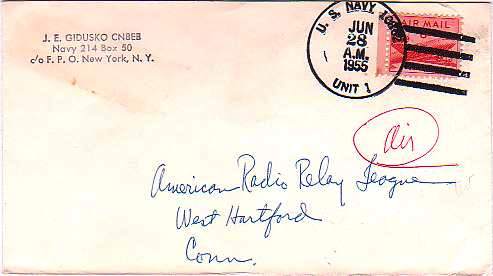 J. E. GIDUSKO CN8EB
Navy 214 Box 50
c/o F. P. O. New York, N. Y.
U. S. NAVY
JUN
28
A.M.
1955
UNIT 1
AIR MAIL
air
American Radio Relay League
West Hartford
Conn.